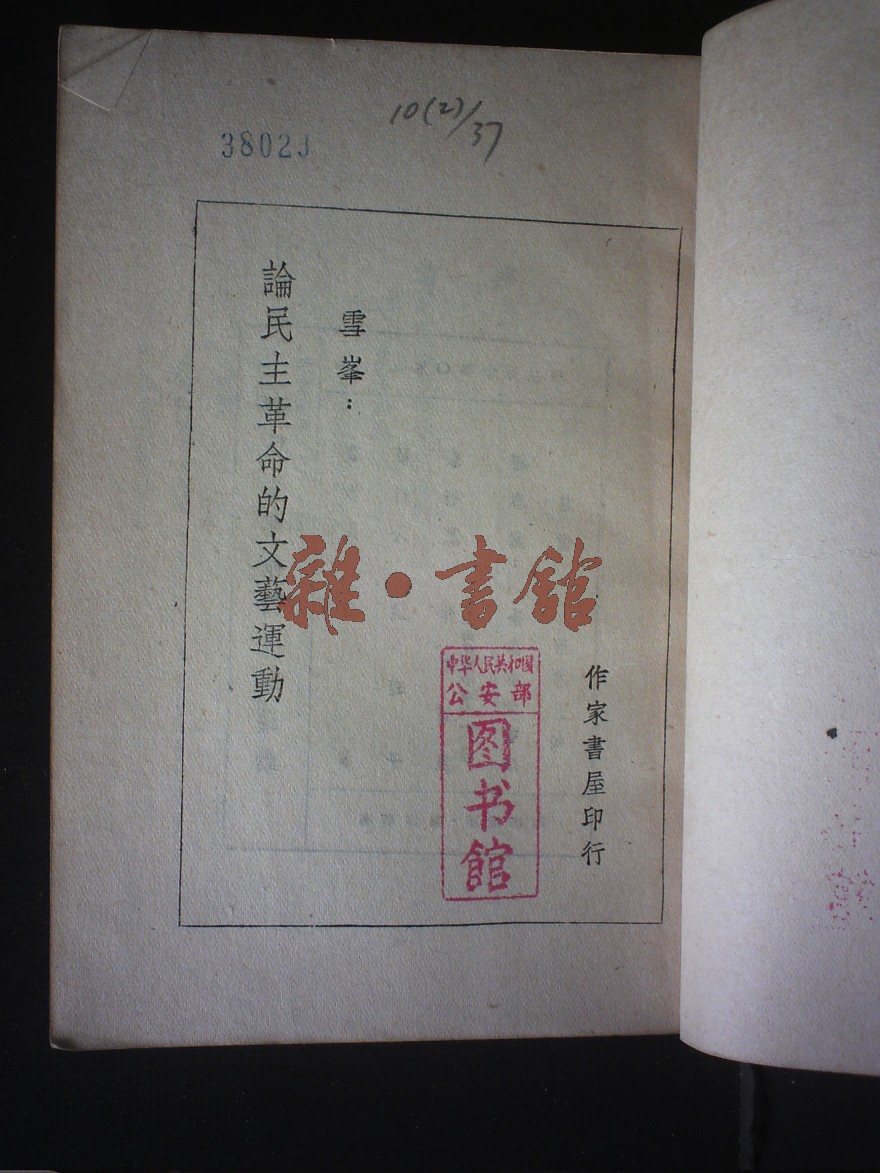 10(2)/37
38023
論民主革命的文藝運動
雪峯：
作家書屋印行
雜·書館
中华人民共和国
公安部
图书館